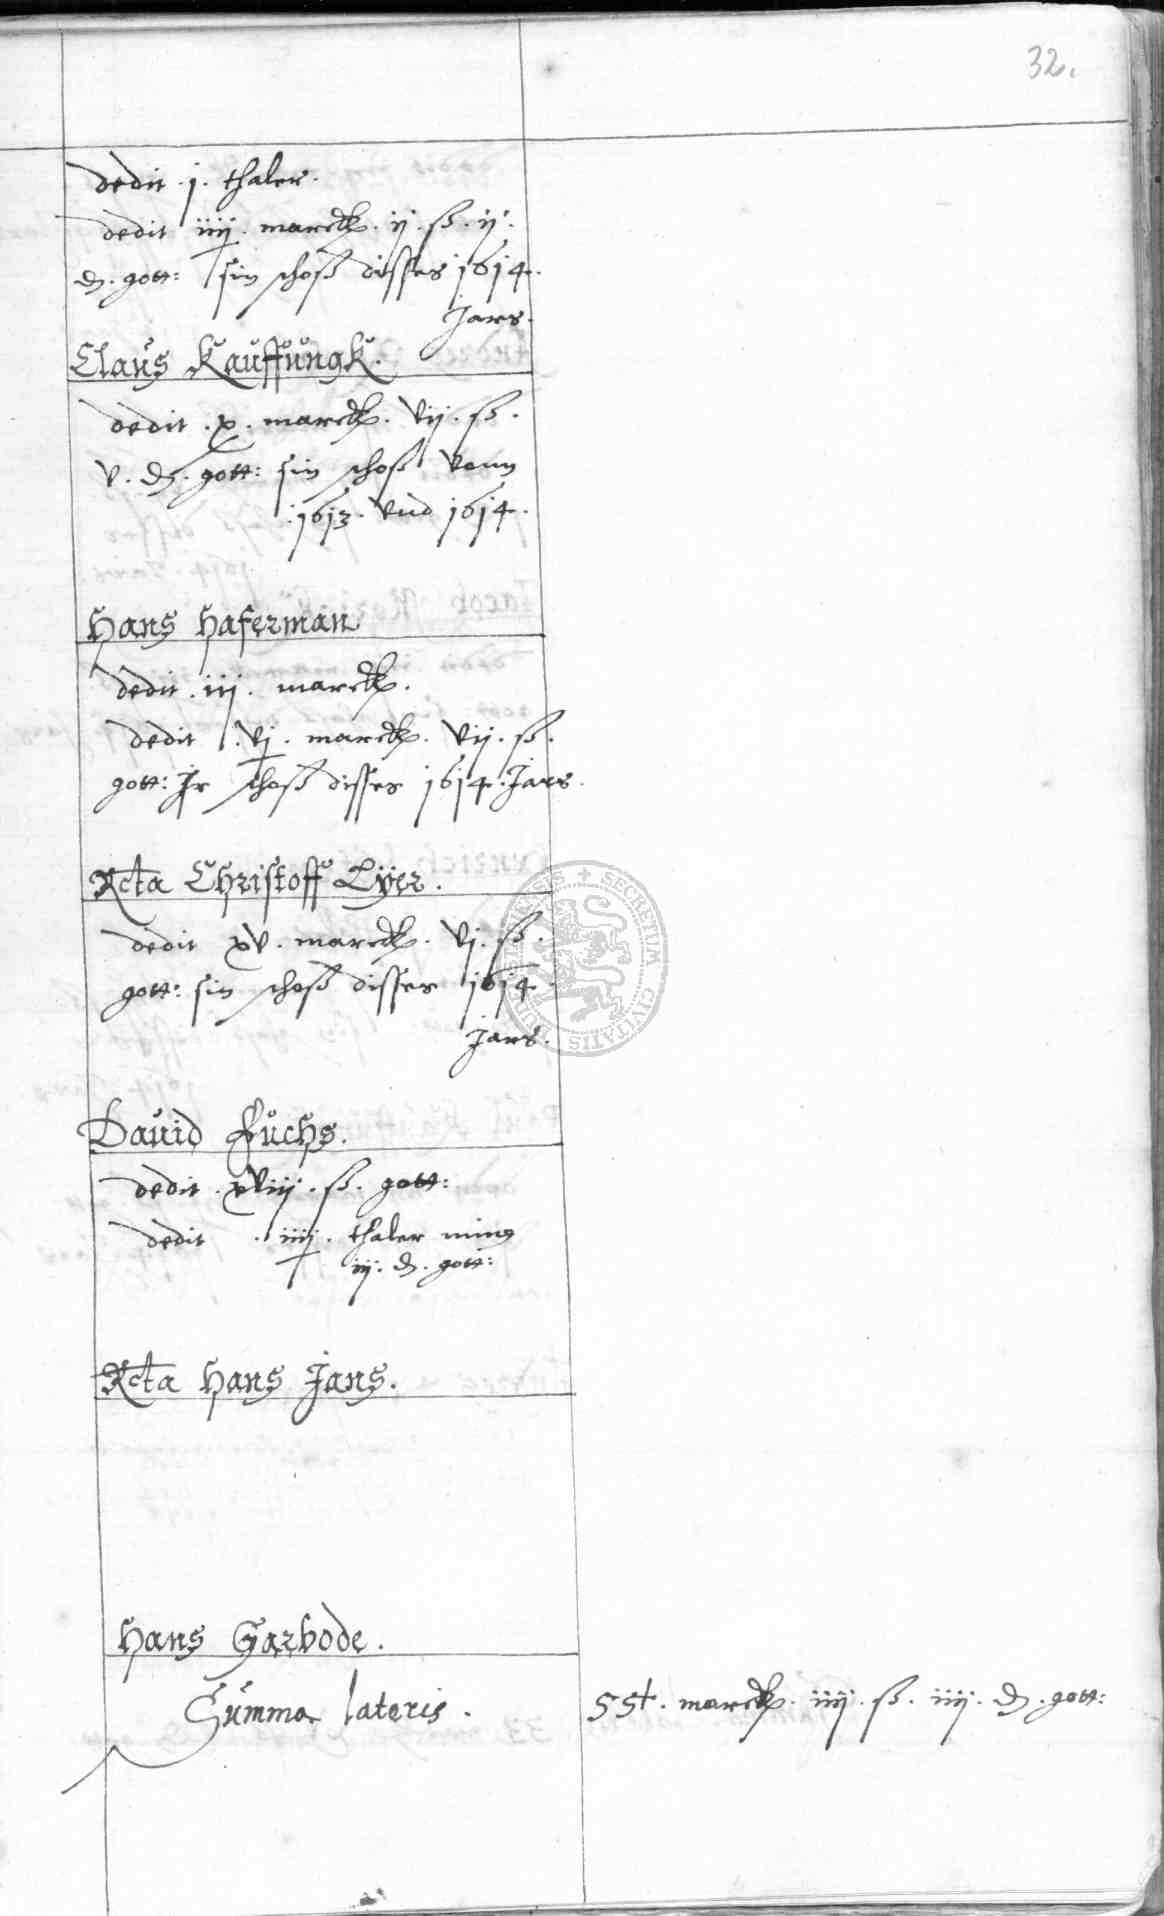 32.
dedit .j. thaler.
dedit iiij. marck. ij. ß. ij.
₰. gott: sin schoß disses 1614.
Jars.
Claus Kauffungk.
dedit .x. marck. vij. ß.
v. ₰. gott: sin schoß vonn
.1613. vnd 1614.
Hans Haferman
dedit .iij. marck.
dedit .vj. marck. vij. ß.
gott: Jr schoß disses 1614. Jars.
Rcta Christoff Lÿer.
dedit xv. marck. vj. ß.
gott: sin schoß disses 1614.
Jars.
Dauid Fuchs.
dedit .xviij. ß. gott:
dedit .iiij. thaler min9
iij. ₰. gott:
Rcta Hans Jans.
Hans Garbode.
Summa lateris. 55½. marck. iiij. ß. iiij. ₰. gott:
SECRETUM CIVITATIS